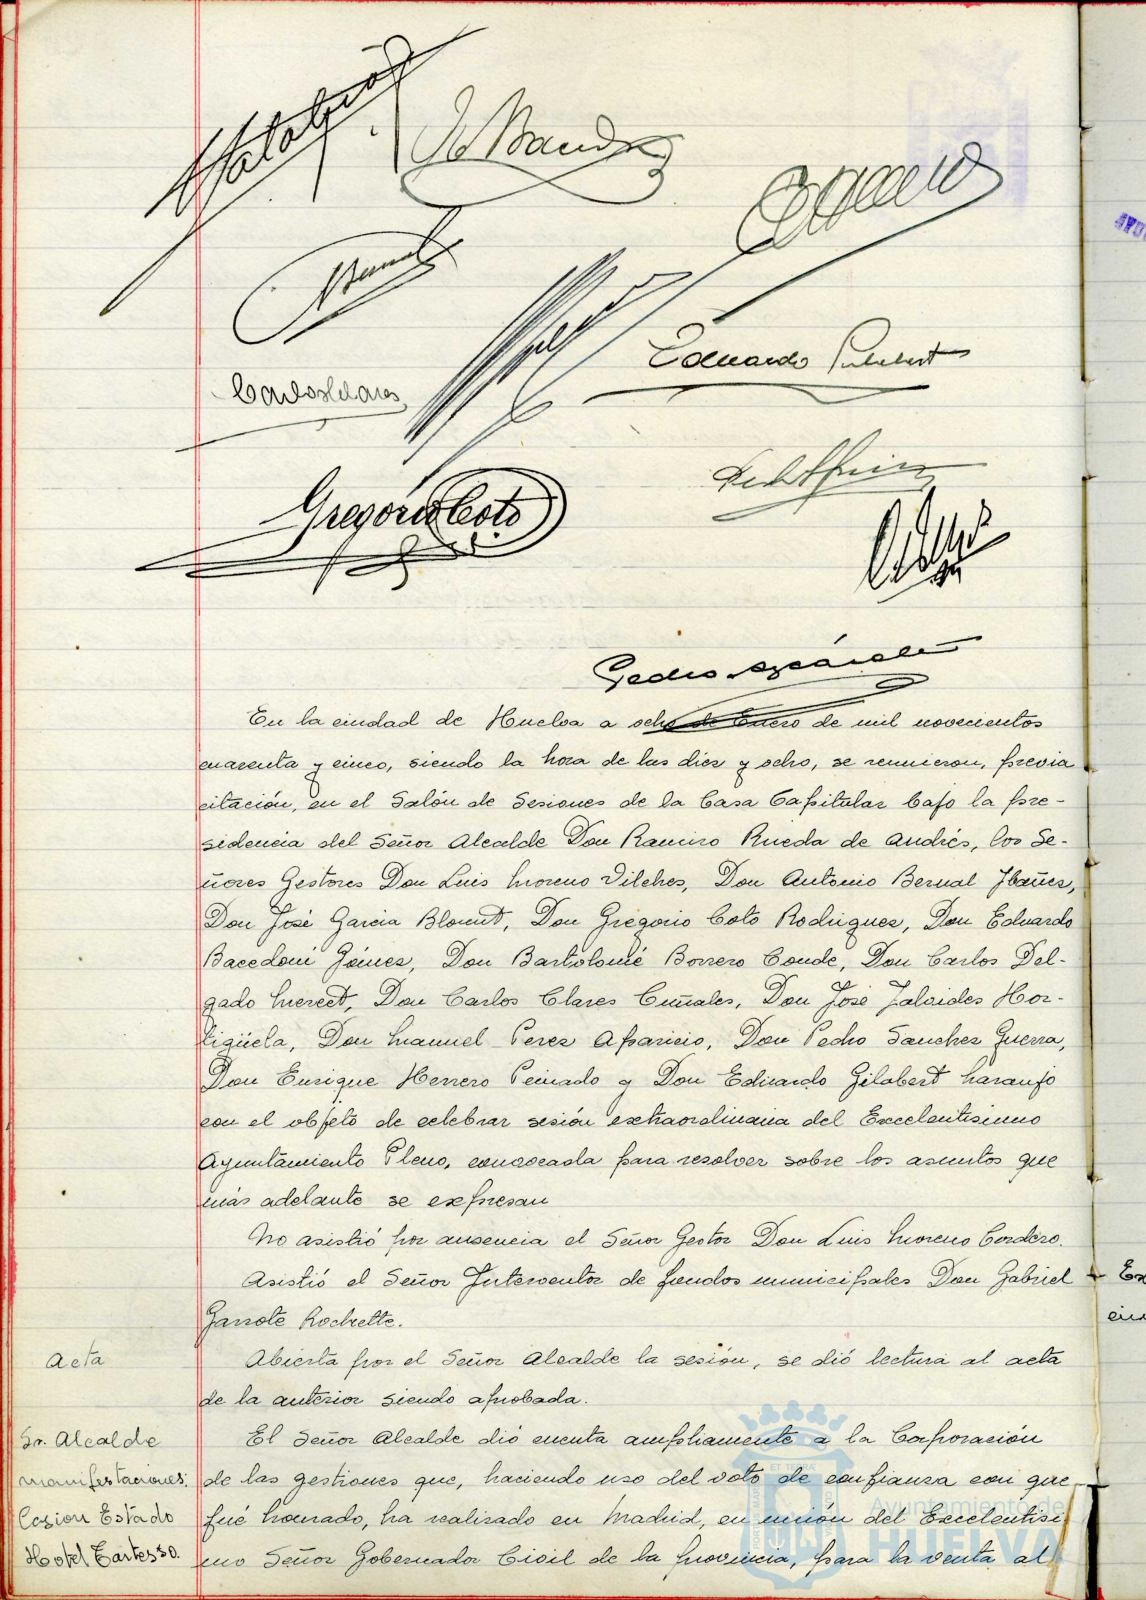 Carlos Clares
Eduardo Gilabert
Gregorio Coto
Pedro
En la ciudad de Huelva a ocho de Enero de mil novecientos
cuarenta y cinco, siendo la hora de las diez y ocho, se reunieron, previa
citación, en el Salón de Sesiones de la Casa Capitular bajo la pre-
sidencia del Señor Alcalde Don Ramiro Rueda de Andrés, los Se-
ñores Gestores Don Luis Moreno Vilches, Don Antonio Bernal Ibañez,
Don José Garcia Blomet, Don Gregorio Coto Rodriguez, Don Eduardo
Bacedoni Gómez, Don Bartolomé Borrero Conde, Don Carlos Del-
gado Mercet, Don Carlos Clares Cuñales, Don José Jalvides Hor-
tigüela, Don Manuel Perez Aparicio, Don Pedro Sanchez Guerra,
Don Enrique Herrero Peinado y Don Eduardo Gilabert Naranjo
con el objeto de celebrar sesión extraordinaria del Excelentisimo
Ayuntamiento Pleno, convocada para resolver sobre los asuntos que
más adelante se expresan
No asistió por ausencia el Señor Gestor Don Luis Moreno Cordero.
Asistió el Señor Interventor de fondos municipales Don Gabriel
Garrote Rochette.
Acta
Abierta por el Señor Alcalde la sesión, se dió lectura al acta
de la anterior siendo aprobada.
Sr. Alcalde
manifestaciones.
Cesion Estado
Hotel Tartesso.
El Señor Alcalde dió cuenta ampliamente a la Corporación
de las gestiones que, haciendo uso del voto de confianza con que
fué honrado, ha realizado en Madrid, en unión del Excelentisi
mo Señor Gobernador Civil de la provincia, para la venta al
Ayuntamiento de
HUELVA